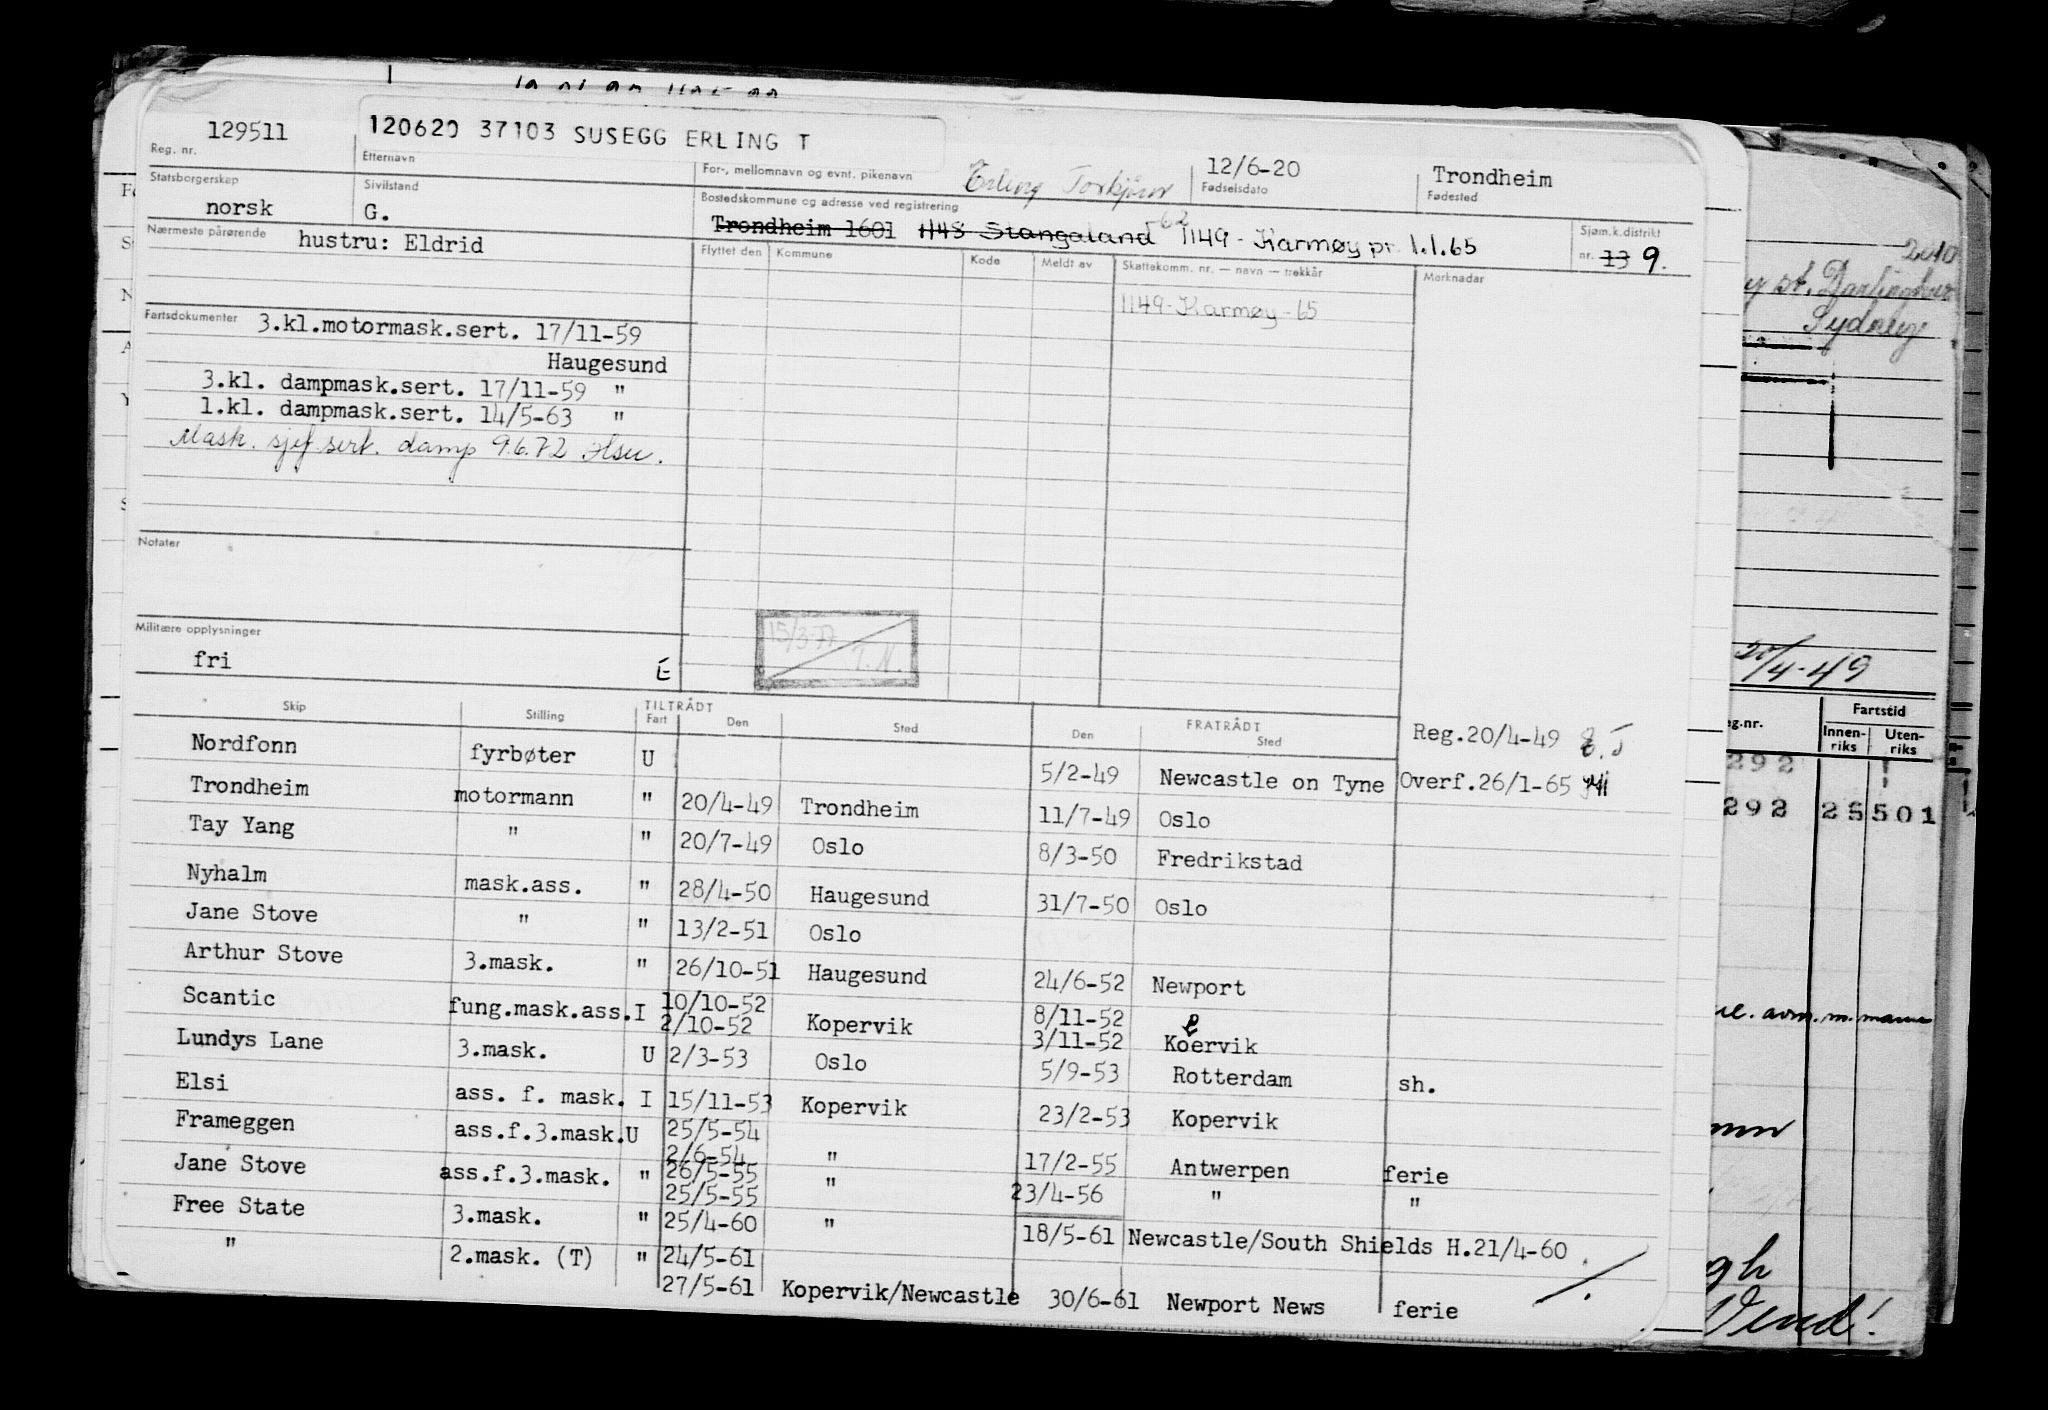 129511
120620 37103 SUSEGG ERLING T
12/6-20
Trondheim
Reg. nr.
Etternavn
For-, mellomnavn og evnt. pikenavn
Erling Torbjørn
Fødselsdato
Fødested
Statsborgerskap
Sivilstand
Bostedskommune og adresse ved registrering
norsk
G.
Trondheim 1601 1148 Stangaland -62 1149 - Karmøy pr. 1.1.65
Sjøm.k.distrikt
nr. 13 9.
Nærmeste pårørende
hustru: Eldrid
Flyttet den
Kommune
Kode
Meldt av
Skattekomm. nr. — navn — trekkår
Merknader
1149-Karmøy-65
Fartsdokumenter
3.kl.motormask.sert. 17/11-59
Haugesund
3.kl. dampmask.sert. 17/11-59 "
1.kl. dampmask.sert. 14/5-63 "
Mask. sjef sert. damp 9.6.72
Notater
15/3-77
T.N.
Militære opplysninger
fri
E
Skip
Stilling
TILTRÅDT
Fart
Den
Sted
FRATRÅDT
Den
Sted
Reg.20/4-49
Nordfonn fyrbøter U 5/2-49 Newcastle on Tyne Overf.26/1-65
Trondheim motormann " 20/4-49 Trondheim 11/7-49 Oslo
Tay Yang " " 20/7-49 Oslo 8/3-50 Fredrikstad
Nyhalm mask.ass. " 28/4-50 Haugesund 31/7-50 Oslo
Jane Stove " " 13/2-51 Oslo
Arthur Stove 3.mask. " 26/10-51 Haugesund 24/6-52 Newport
Scantic fung.mask.ass. I 10/10-52 8/11-52
2/10-52 Kopervik 3/11-52 Kopervik
Lundys Lane 3.mask. U 2/3-53 Oslo 5/9-53 Rotterdam sh.
Elsi ass. f. mask. I 15/11-53 Kopervik 23/2-53 Kopervik
Frameggen ass.f.3.mask.U 25/5-54
2/6-54 " 17/2-55 Antwerpen ferie
Jane Stove ass.f.3.mask. " 26/5-55
25/5-55 " 23/4-56 " "
Free State 3.mask. " 25/4-60 " 18/5-61 Newcastle/South Shields H.21/4-60
" 2.mask. (T) " 24/5-61
27/5-61 Kopervik/Newcastle 30/6-61 Newport News ferie
2010
st. Darlinghur
Sydney
/4-49
g.nr.
Fartstid
Innen-
riks
Uten-
riks
292
292 25 501
Vend!